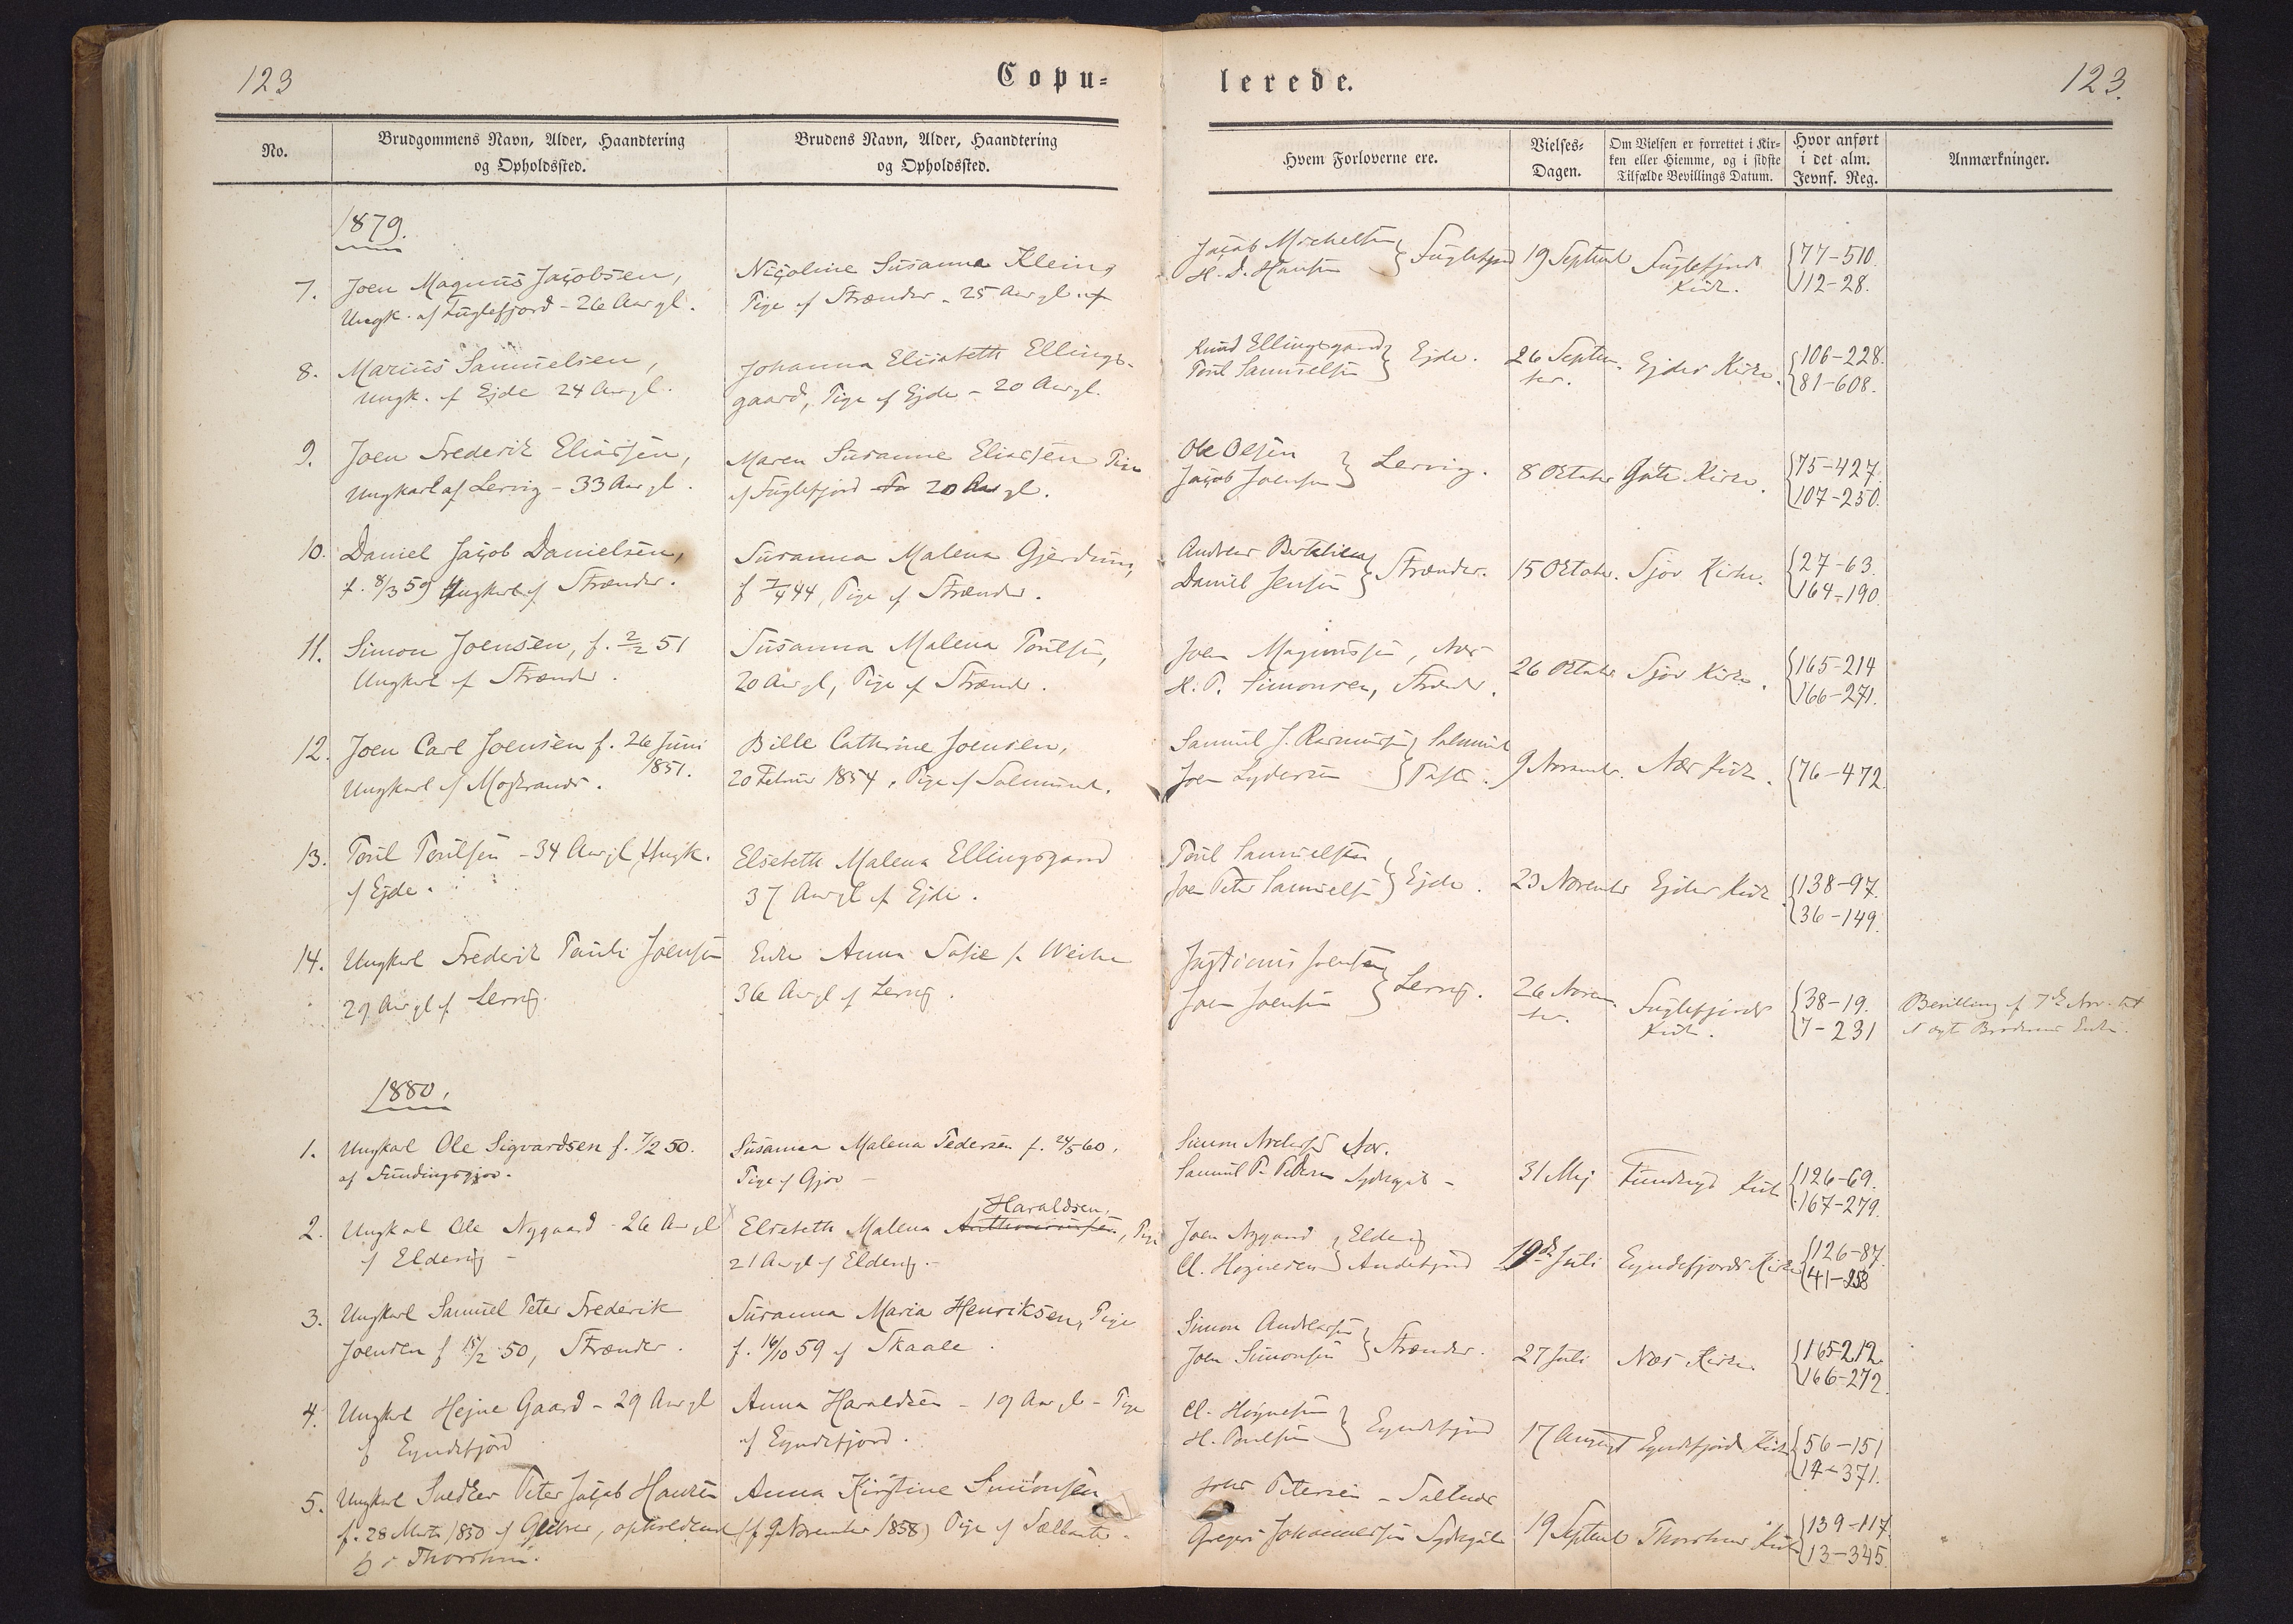 123
Copu-
lerede.
123.
No.
Brudgommens Navn, Alder, Haandtering
og Opholdssted.
Brudens Navn, Alder, Haandtering
og Opholdssted.
Hvem Forloverne ere.
Vielses-
Dagen.
Om Vielsen er forrettet i Kir-
ken eller Hiemme, og i sidste
Tilfælde Bevillings Datum.
Hvor anført
i det alm.
Jevnf. Reg.
Anmærkninger.
1879.
7.
Joen Magnus Jacobsen,
Ungk. af Fuglefjord - 26 Aar gl.
Nicoline Susanna Klein,
Pige af Strænder - 25 Aar gl.
Jacob Michelsen
H. D. Hansen
Fuglefjord
19 Septemb
Fuglefjords
Kirk.
77-510.
112-28.
8.
Marius Samuelsen,
Ungk. af Ejde 24 Aar gl.
Johanna Elisabeth Ellings-
gaard, Pige af Ejde - 20 Aar gl.
Knud Ellingsgaard
Poul Samuelsen
Ejde.
26 Septem-
ber.
Ejdes Kirke.
106-228.
81-608.
9.
Joen Frederik Eliassen,
Ungkarl af Lervig - 33 Aar gl.
Maren Susanne Eliassen Pige
af Fuglefjord 20 Aar gl.
Ole Olsen
Jacob Joensen
Lervig.
8 Octobr
Gøte Kirke.
75-427.
107-250.
10.
Daniel Jacob Danielsen,
f. 8/3 59 Ungkarl af Strænder.
Susanna Malena Gjerdum,
f 7/4 44, Pige af Strænder.
Daniel Jensen
Strænder.
15 Octobr.
Sjov Kirke.
27-63.
164-190.
11.
Simon Joensen, f. 2/2 51
Ungkarl af Strænder.
Susanna Malena Poulsen,
20 Aar gl, Pige af Strænder.
Joen Magnussen, Næs
H. P. Simonsen, Strænder.
26 Octobr
Sjov Kirke.
165-214
166-271.
12.
Joen Carl Joensen f. 26 Juni
1851.
Ungkarl af Morskranes.
Bille Cathrine Joensen,
20 Februar 1854, Pige af Salmund.
Samuel J. Rasmussen Salmund
Joen Lydersen
9 Novembr.
Næs Kirk.
76-472.
13.
Poul Poulsen - 34 Aar gl Ungk.
af Ejde.
Elsebeth Malena Ellingsgaard
37 Aar gl af Ejde.
Poul Samuelsen
Joen Peter Samuelsen
Ejde.
23 Novembr
Ejdes Kirk.
138-97.
36-149.
14.
Ungkarl Frederik Pauli Joensen
29 Aar gl af Lervig.
Enke Anna Sofie f. Weihe
36 Aar gl af Lervig.
Justinus Joensen
Joen Joensen
Lervig.
26 Novem-
ber.
Fuglefjords
Kirk.
38-19.
7-231
Bevilling af 7de Nov. til
at ægte Broderens Enke.
1880.
1.
Ungkarl Ole Sigvardsen f. 7/2 50.
af Fundingsgjov.
Susanna Malena Pedersen f. 24/5 60.
Pige af Gjov -
Samuel P. Pedersen Sydrgøte -
31 Mej
126-69.
167-279.
2.
Ungkarl Ole Nygaard - 26 Aar gl
af Eldevig -
Haraldsen,
Elsebeth Malena , Pige
21 Aar gl af Eldevig. -
Joen Nygaard
Cl. Høgnesen
Eldevig
Andefjord
19de Juli
Eyndefjords Kirke
126-87.
41-258
3.
Ungkarl Samuel Peter Frederik
Joensen f 15/2 50, Strænder.
Susanna Maria Henriksen, Pige
f. 16/10 59 af Skaale.
Simon Andreassen
Joen Simonsen
Strænder.
27 Juli
Næs Kirke.
165-212.
166-272.
4.
Ungkarl Hejne Gaard - 29 Aar gl
af Eyndefjord
Anna Haraldsen - 19 Aar gl - Pige
af Eyndefjord.
Cl. Høgnesen
H. Poulsen
Eyndefjord
17 August
Eyndefjords Kirk
56-151
14-371.
5.
Ungkarl Peter Jacob Hansen
f. 28 Marts 1850 af Glibre, opholdende
sig i Thorshavn.
Anna Kirstine Simonsen
(f. 9 November 1858) Pige af Sælletræ.
Petersen - Saltnes
Johannessen Sydrgøte
19 Septemb
Thorshavns Kirk
139-117.
13-345.